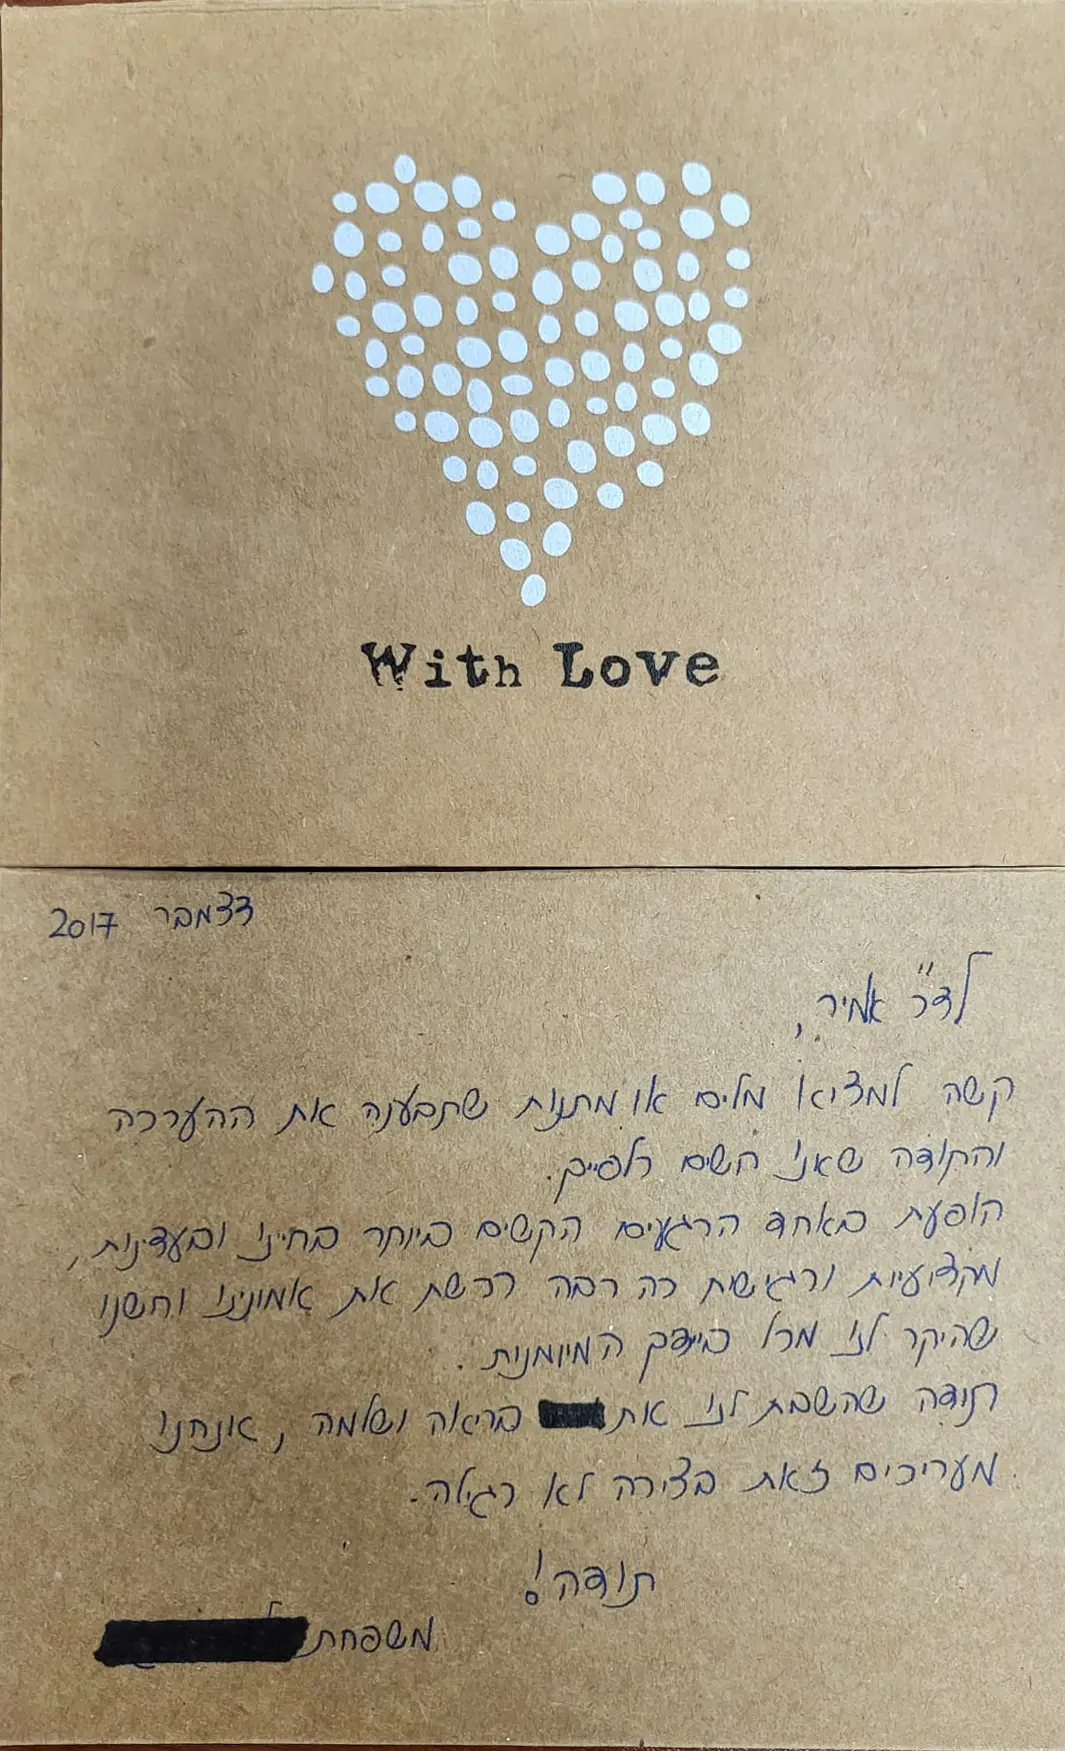 With Love
דצמבר 2017
לד"ר אמיר,
קשה למציא מלים או מתנות שתבענה את ההערכה
והתודה שאנו חשים כלפייך.
הופעת באחד הרגעים הקשים ביותר בחיינו ובעדינות,
מקצועיות ורגישות כה רבה רכשת את אמונינו וחשנו
שהיקר לנו מכל ביידך המיומנות.
תודה שהשבת לנו את בריאה ושלמה, אנחנו
מעריכים זאת בצורה לא רגילה.
תודה!
משפחת